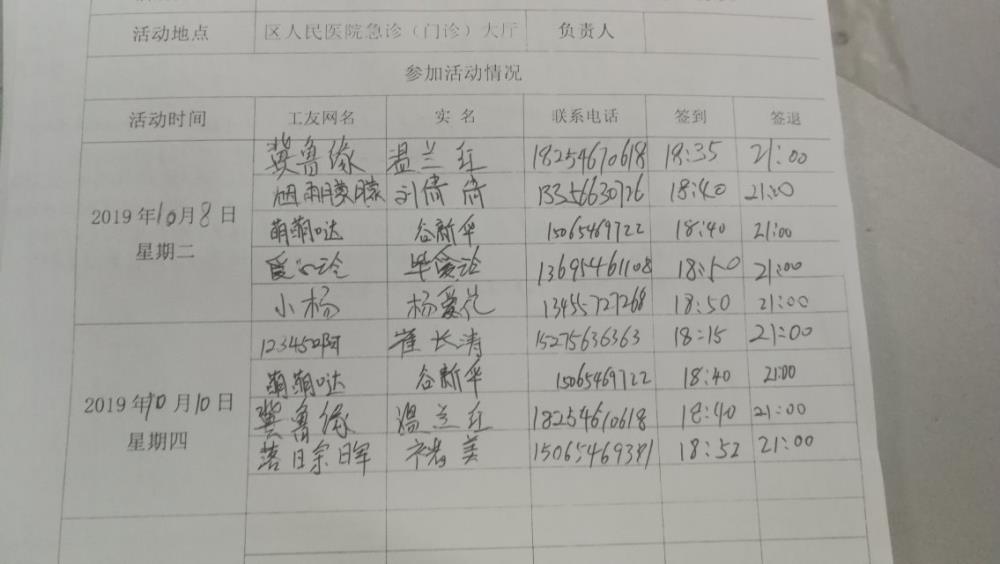 活动地点 区人民医院急诊（门诊）大厅 负责人
参加活动情况
活动时间 工友网名 实 名 联系电话 签到 签退
冀鲁缘 温兰红 18254670618 18:35 21:00
烟雨朦胧 刘倩倩 13356630726 18:40 21:00
2019年10月8日
星期二
萌萌哒 谷新华 15065469722 18:40 21:00
13695461108 18:50 21:00
小杨 杨爱花 13455727268 18:50 21:00
123450啊 崔长涛 15275636363 18:15 21:00
萌萌哒 谷新华 15065469722 18:40 21:00
2019年10月10日
星期四
冀鲁缘 温兰红 18254610618 18:40 21:00
落日余晖 褚美 15065469381 18:52 21:00